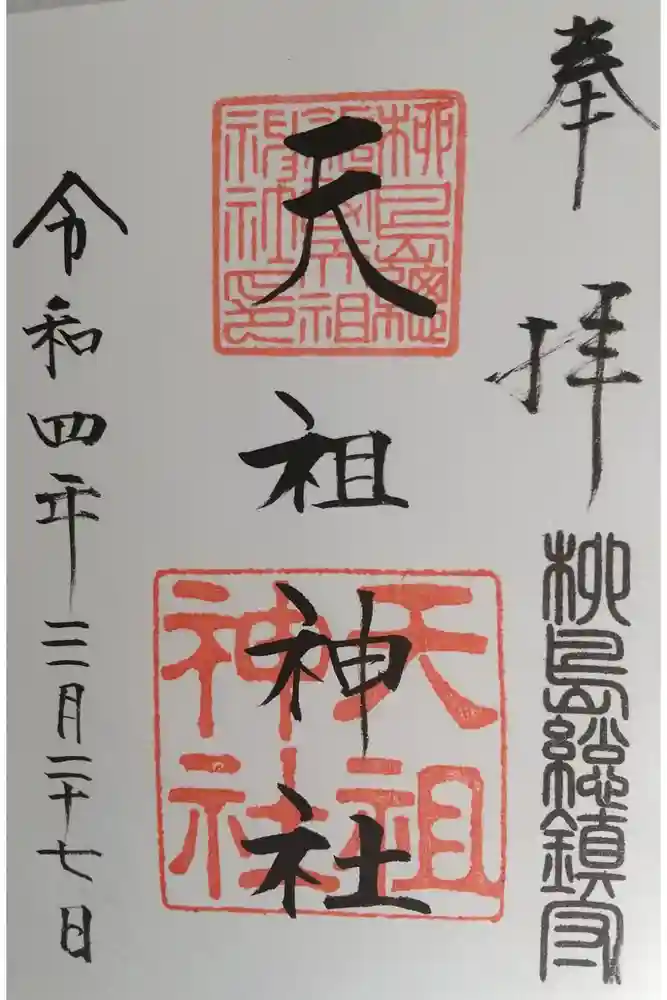 奉拝
柳島総鎮守
柳島總
鎮守天祖
神社印
天祖神社
天祖
神社
令和四年三月二十七日